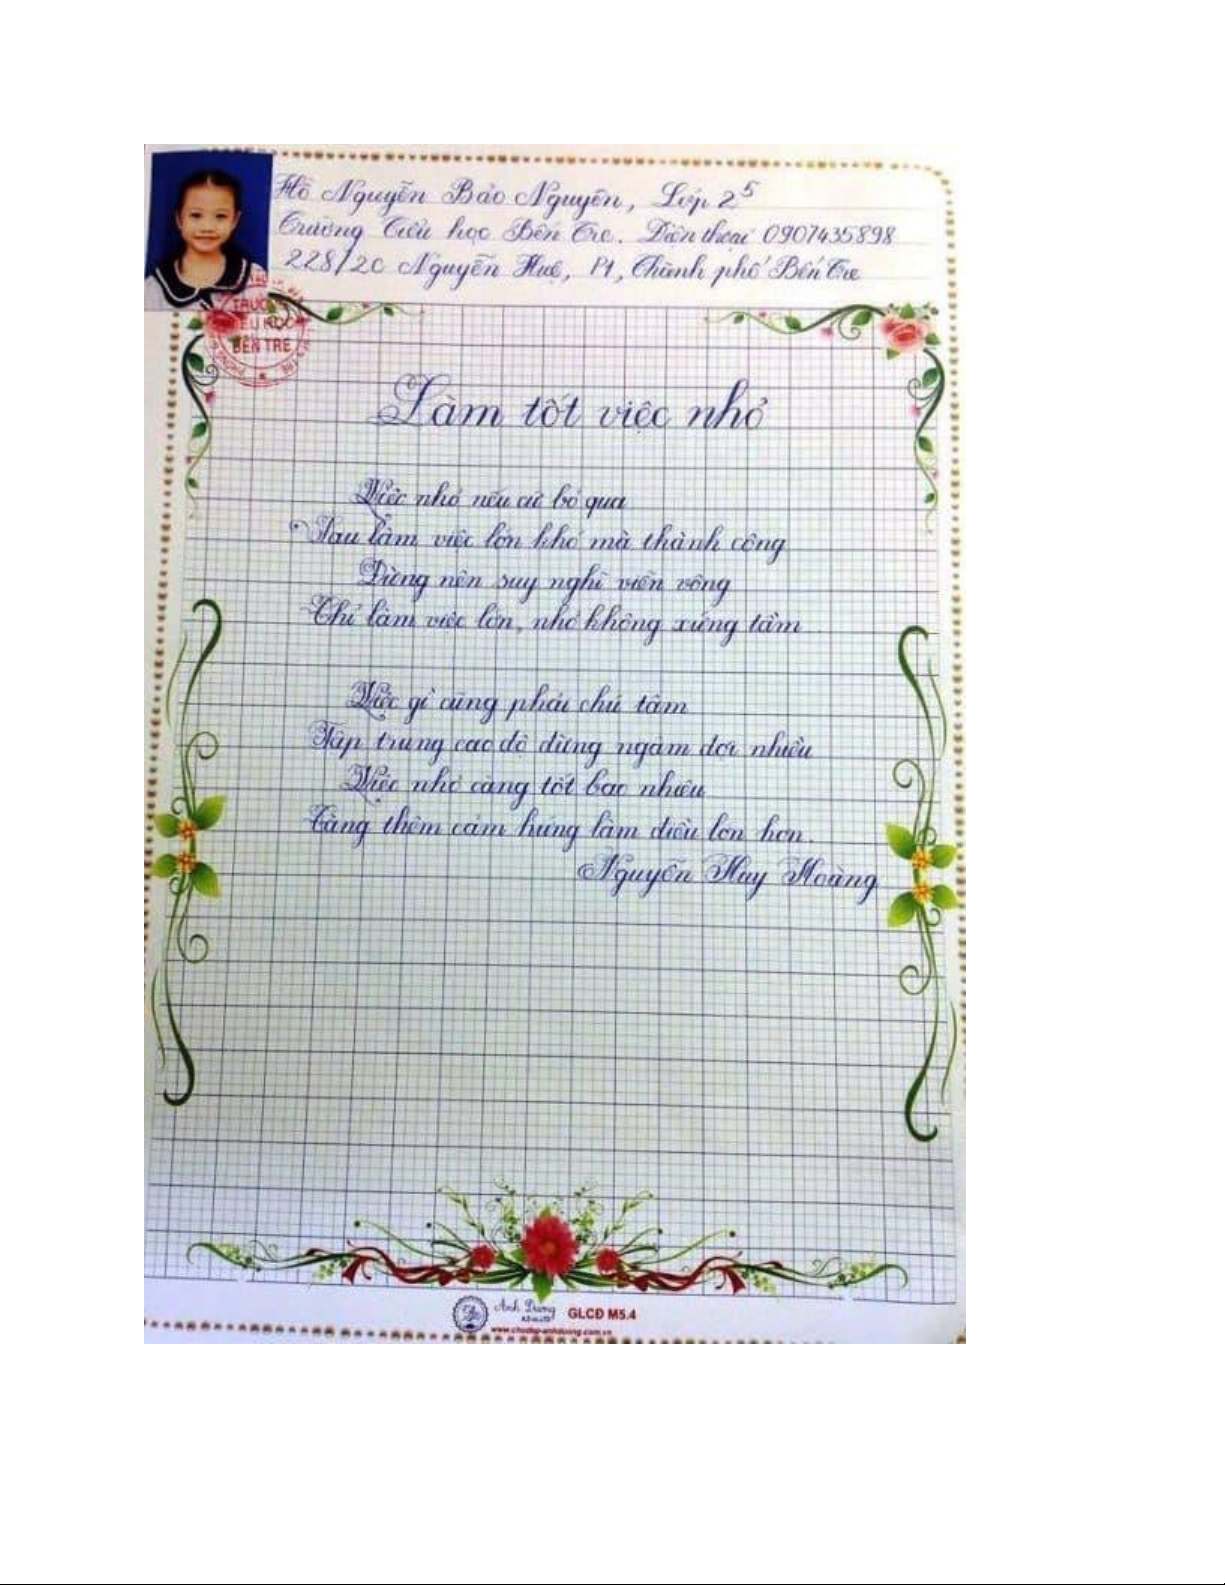 Hồ Nguyễn Bảo Nguyên, Lớp 2⁵
Trường Tiểu học Bến Tre. Điện thoại 0907435898
228/2C Nguyễn Huệ, P1, Thành phố Bến Tre
TRƯỜNG
TIỂU HỌC
BẾN TRE
Làm tốt việc nhỏ
Việc nhỏ nếu cứ bỏ qua
Sau làm việc lớn khó mà thành công
Đừng nên suy nghĩ viển vông
Chỉ làm việc lớn, nhỏ không xứng tầm
Việc gì cũng phải chú tâm
Tập trung cao độ đừng ngắm đợi nhiều
Việc nhỏ càng tốt bao nhiêu
Càng thêm cảm hứng làm điều lớn hơn.
Nguyễn Huy Hoàng
Ánh Dương
GLCĐ M5.4
www.chudep-anhduong.com.vn